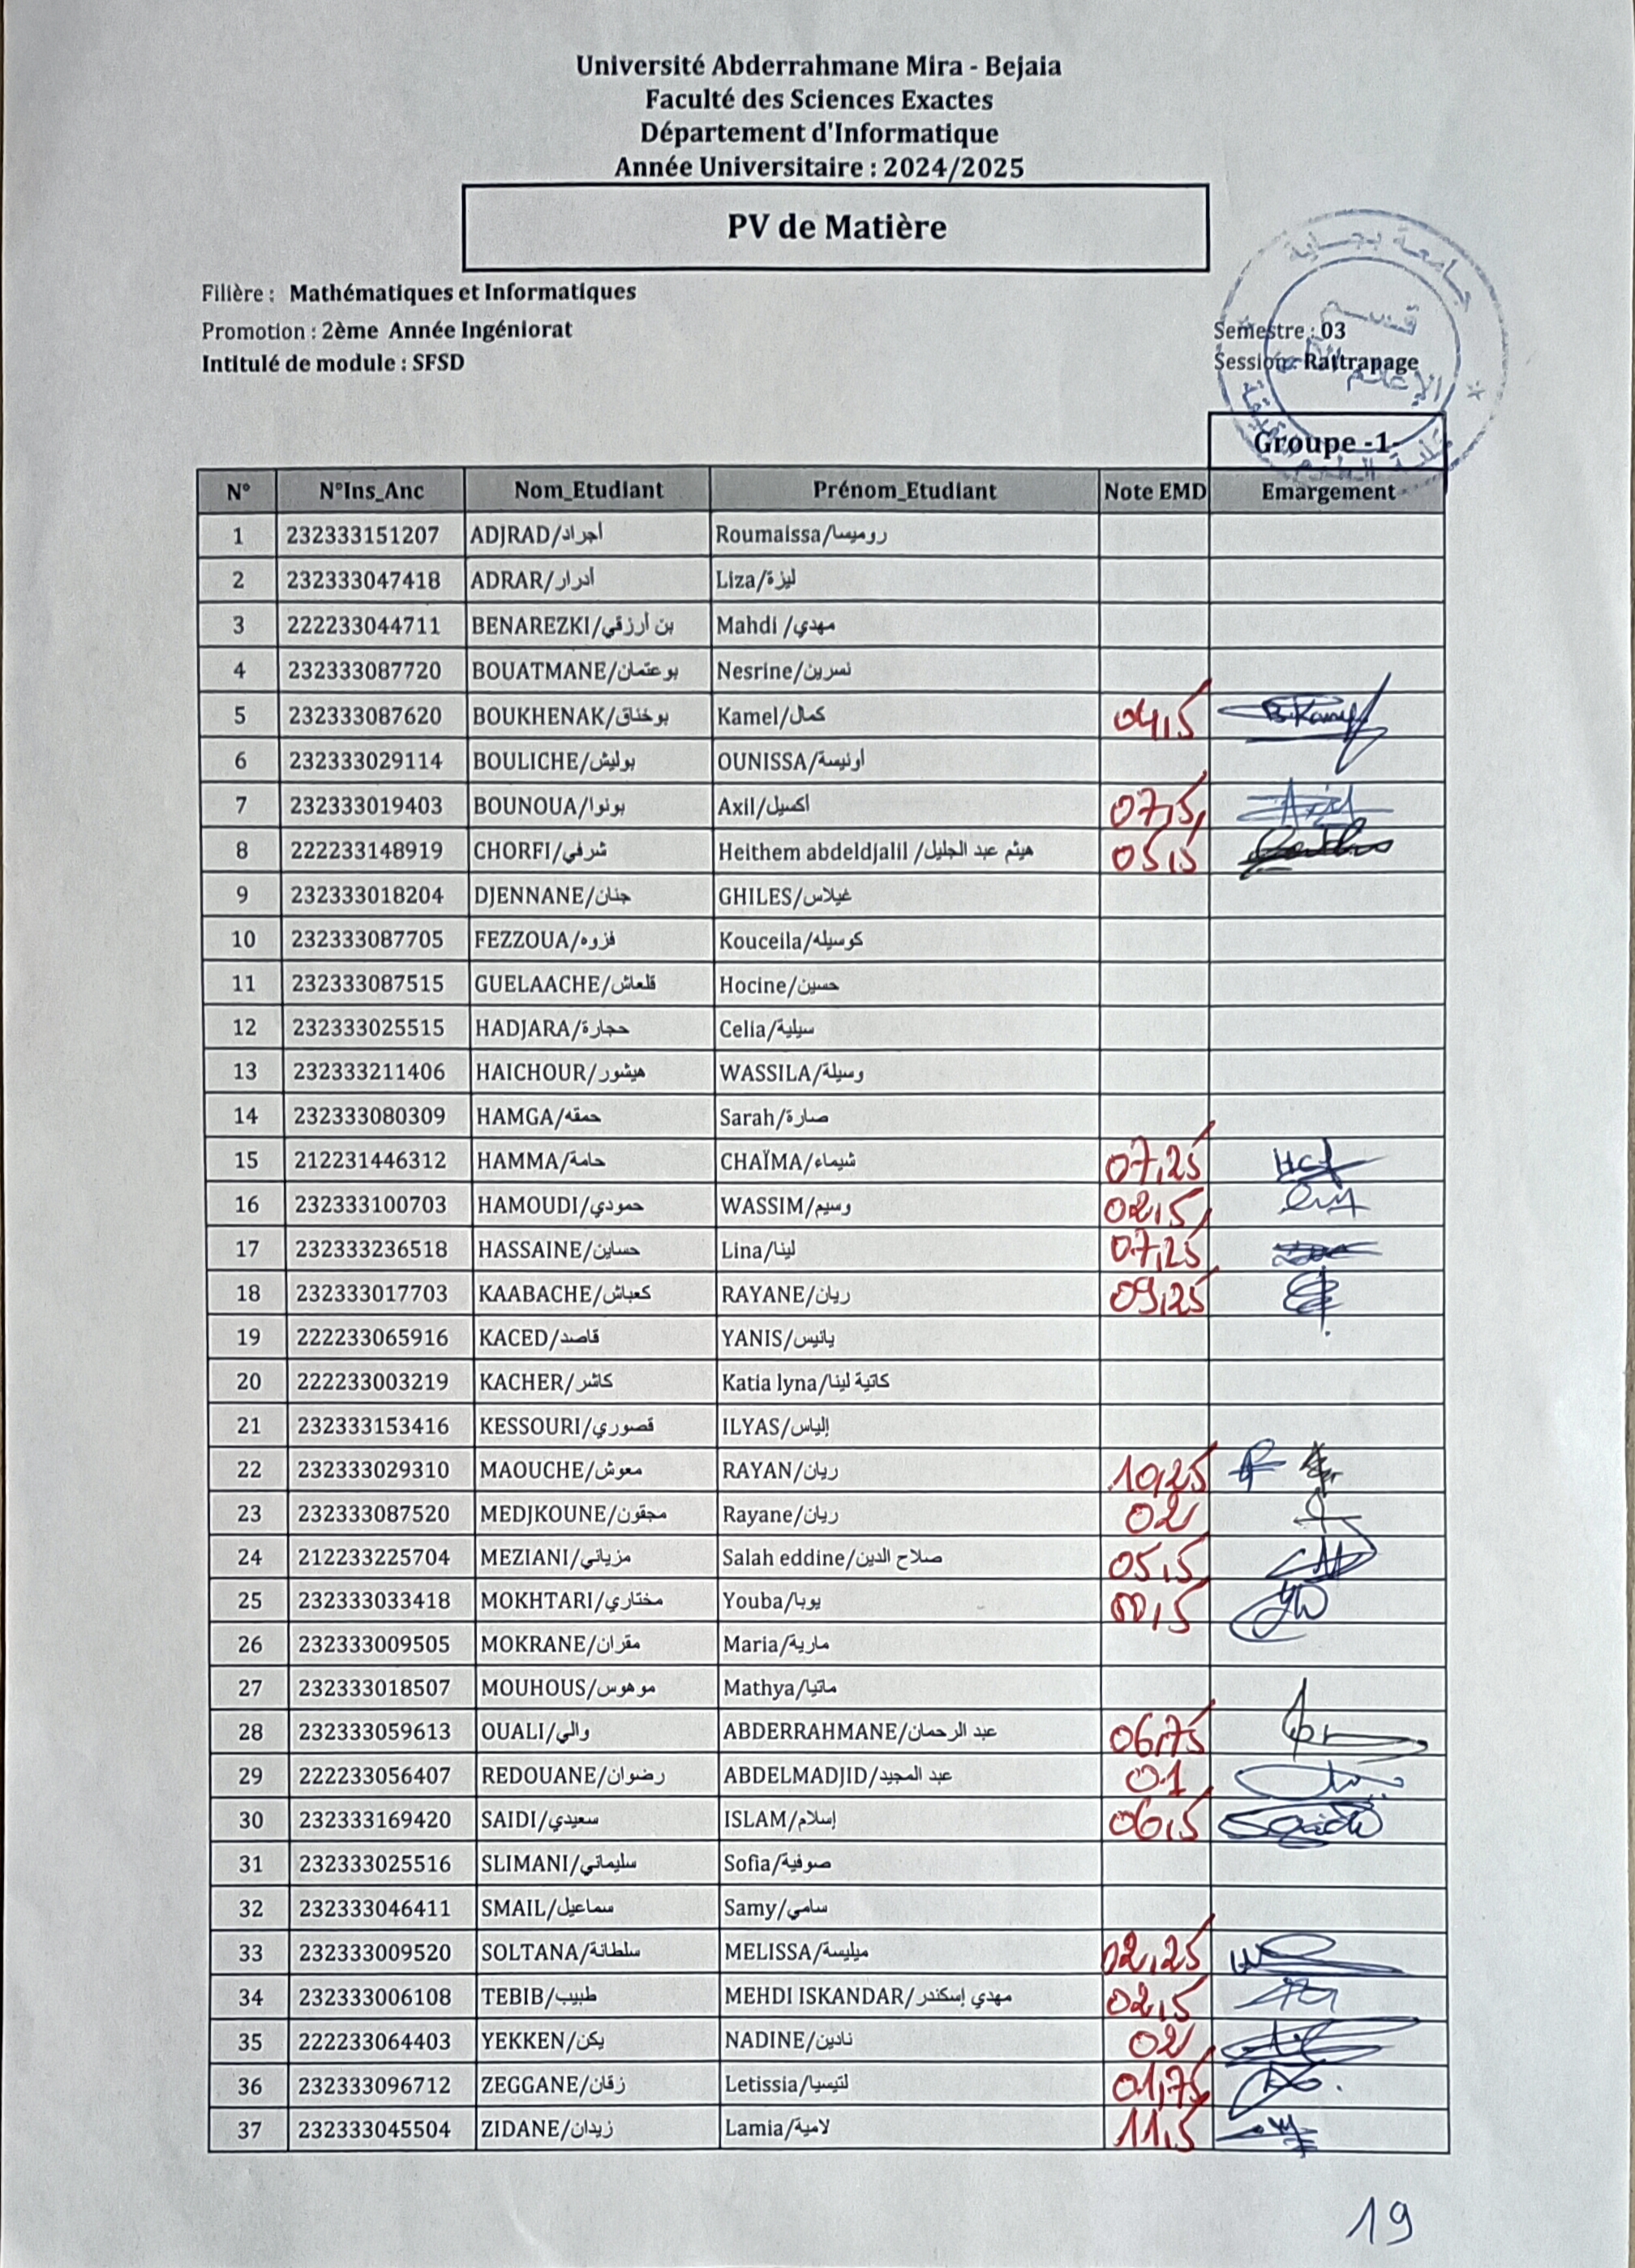 Université Abderrahmane Mira - Bejaia
Faculté des Sciences Exactes
Département d'Informatique
Année Universitaire : 2024/2025
PV de Matière
Filière : Mathématiques et Informatiques
Promotion : 2ème Année Ingéniorat Semestre : 03
Intitulé de module : SFSD Session: Rattrapage
جامعة بجاية
قسم
الإعلام
Groupe -1-
N° N°Ins_Anc Nom_Etudiant Prénom_Etudiant Note EMD Emargement
1 232333151207 ADJRAD/أجراد Roumaissa/روميسا
2 232333047418 ADRAR/أدرار Liza/ليزة
3 222233044711 BENAREZKI/بن أرزقي Mahdi /مهدي
4 232333087720 BOUATMANE/بوعتمان Nesrine/نسرين
5 232333087620 BOUKHENAK/بوخناق Kamel/كمال 04,5
6 232333029114 BOULICHE/بوليش OUNISSA/أونيسة
7 232333019403 BOUNOUA/بونوا Axil/أكسيل 07,5
8 222233148919 CHORFI/شرفي Heithem abdeldjalil /هيثم عبد الجليل 05,5
9 232333018204 DJENNANE/جنان GHILES/غيلاس
10 232333087705 FEZZOUA/فزوه Kouceila/كوسيله
11 232333087515 GUELAACHE/قلعاش Hocine/حسين
12 232333025515 HADJARA/حجارة Celia/سيلية
13 232333211406 HAICHOUR/هيشور WASSILA/وسيلة
14 232333080309 HAMGA/حمقه Sarah/صارة
15 212231446312 HAMMA/حامة CHAÏMA/شيماء 07,25
16 232333100703 HAMOUDI/حمودي WASSIM/وسيم 02,5
17 232333236518 HASSAINE/حساين Lina/لينا 07,25
18 232333017703 KAABACHE/كعباش RAYANE/ريان 09,25
19 222233065916 KACED/قاصد YANIS/يانيس
20 222233003219 KACHER/كاشر Katia lyna/كاتية لينا
21 232333153416 KESSOURI/قصوري ILYAS/إلياس
22 232333029310 MAOUCHE/معوش RAYAN/ريان 10,25
23 232333087520 MEDJKOUNE/مجقون Rayane/ريان 02
24 212233225704 MEZIANI/مزياني Salah eddine/صلاح الدين 05,5
25 232333033418 MOKHTARI/مختاري Youba/يوبا 00,5
26 232333009505 MOKRANE/مقران Maria/مارية
27 232333018507 MOUHOUS/موهوس Mathya/ماتيا
28 232333059613 OUALI/والي ABDERRAHMANE/عبد الرحمان 06,75
29 222233056407 REDOUANE/رضوان ABDELMADJID/عبد المجيد 01
30 232333169420 SAIDI/سعيدي ISLAM/إسلام 06,5
31 232333025516 SLIMANI/سليماني Sofia/صوفية
32 232333046411 SMAIL/سماعيل Samy/سامي
33 232333009520 SOLTANA/سلطانة MELISSA/ميليسة 02,25
34 232333006108 TEBIB/طبيب MEHDI ISKANDAR/مهدي إسكندر 02,5
35 222233064403 YEKKEN/يكن NADINE/نادين 02
36 232333096712 ZEGGANE/زقان Letissia/لتيسيا 01,75
37 232333045504 ZIDANE/زيدان Lamia/لامية 11,5
19